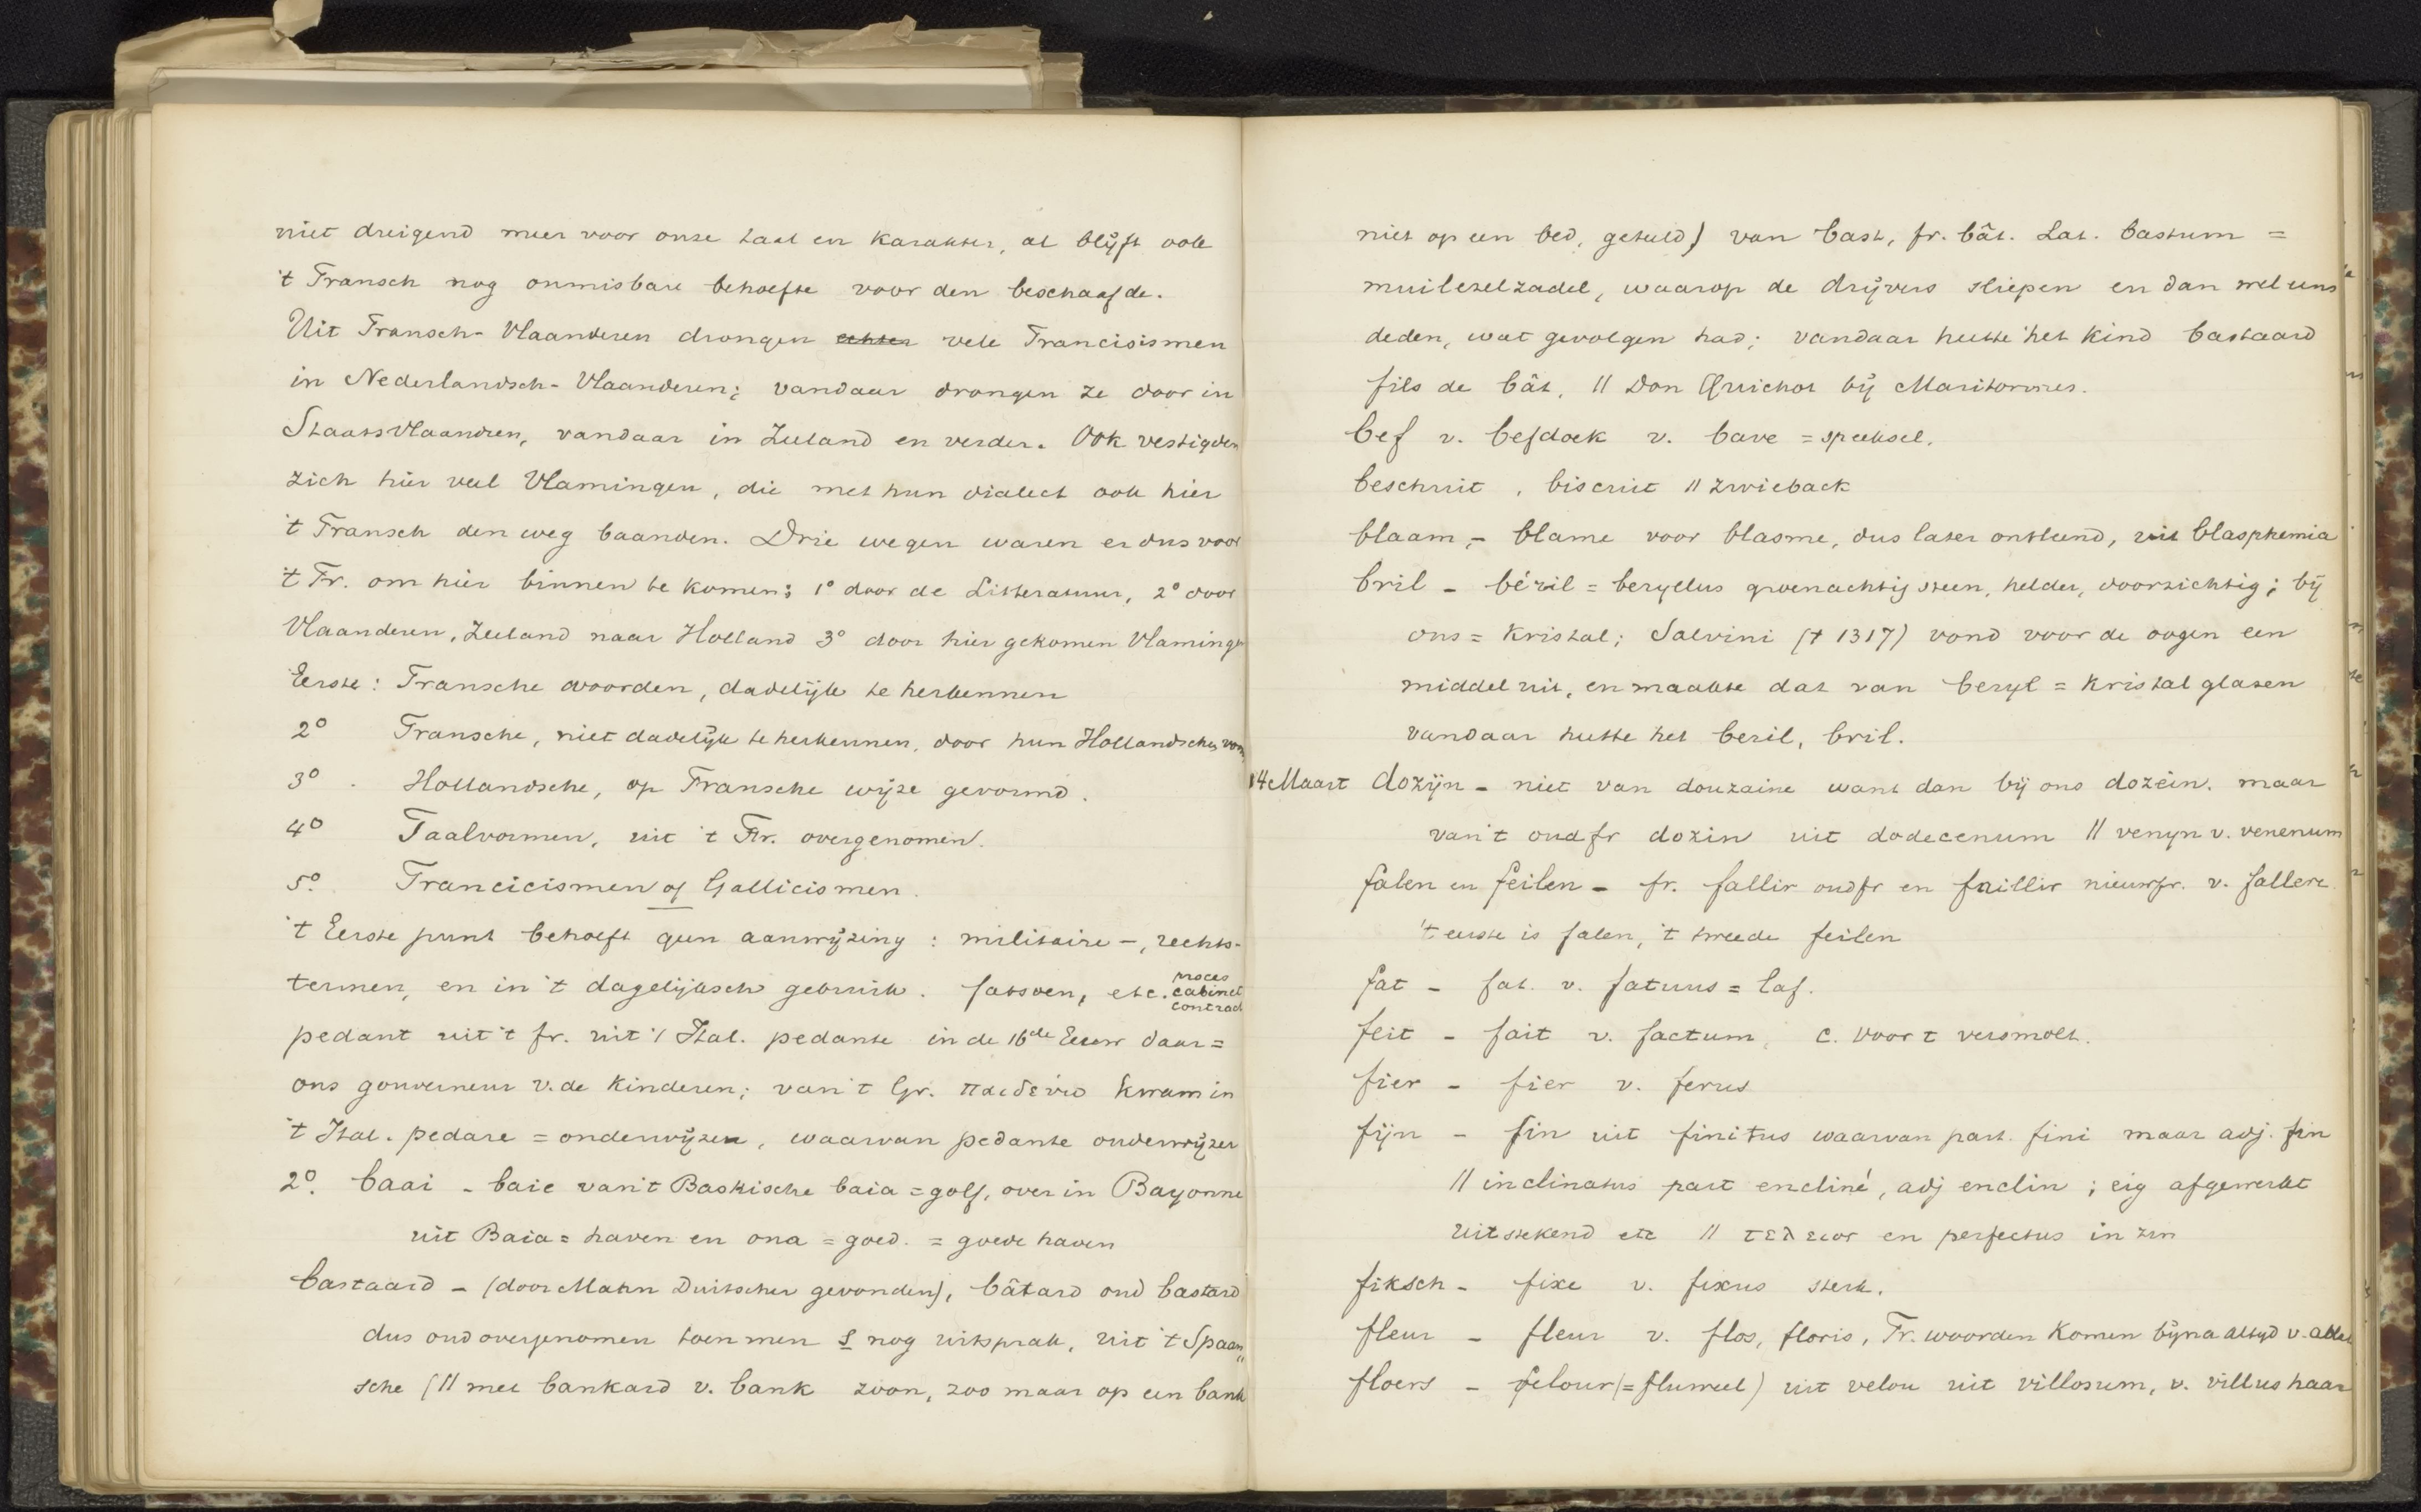 niet dreigend meer voor onze taal en karakter, al blijft ook
't Fransch nog onmisbare behoefte voor den beschaafde.
Uit Fransch-Vlaanderen drongen echter vele Francisismen
in Nederlandsch-Vlaanderen; vandaar drongen ze door in
Staatsvlaandren, vandaar in Zeeland en verder. Ook vestigden
zich hier veel Vlamingen, die met hun dialect ook hier
't Fransch den weg baanden. Drie wegen waren er dus voor
't Fr. om hier binnen te komen: 1° door de Litteratuur, 2° door
Vlaanderen, Zeeland naar Holland 3° door hier gekomen Vlamingen
Eerste: Fransche woorden, dadelijk te herkennen
2° Fransche, niet dadelijk te herkennen, door hun Hollandschen vorm
3° . Hollandsche, op Fransche wijze gevormd.
4° Taalvormen, uit 't Fr. overgenomen.
5°. Francicismen of Gallicismen.
't Eerste punt behoeft geen aanwijzing: militaire-, rechts-
termen, en in 't dagelijksch gebruik. fatsoen, etc. proces cabinet contract
pedant uit 't fr. uit 't Ital. pedante in de 16de Eeuw daar =
ons gouverneur v. de kinderen; van 't Gr. παιδεύω kwam in
't Ital. pedare = onderwijzen, waarvan pedante onderwijzer
2°. baai - baie van 't Baskische baia = golf, over in Bayonne
uit Baia = haven en ona = goed. = goede haven
bastaard - (door Mahn Duitscher gevonden), bâtard oud bastard
dus oud overgenomen toen men s nog uitsprak, uit 't Spaan"
sche (// met bankard v. bank zoon, zoo maar op een bank
niet op een bed, geteeld) van bast, fr. bât. Lat. bastum =
muilezelzadel, waarop de drijvers sliepen en dan wel eens
deden, wat gevolgen had; vandaar heette het kind bastaard
fils de bât, // Don Quichot bij Maritornes.
bef v. befdoek v. bave = speeksel.
beschuit, biscuit // zwieback
blaam, - blame voor blasme, dus later ontleend, uit blasphemia
bril - béril = beryllus groenachtig steen, helder, doorzichtig; bij
ons = kristal; Salvini († 1317) vond voor de oogen een
middel uit, en maakte dat van beryl = kristal glasen
vandaar heette het beril, bril.
14 Maart dozijn - niet van douzaine want dan bij ons dozein. maar
van 't oudfr dozin uit dodecenum // venyn v. venenum
falen en feilen - fr. fallir oudfr en faillir nieuwfr. v. fallere
't eerste is falen, 't tweede feilen
fat - fat. v. fatuus = laf.
feit - fait v. factum, c. voor t versmolt.
fier - fier v. ferus
fijn - fin uit finitus waarvan part. fini maar adj. fin
// inclinatus part encliné, adj enclin; eig afgewerkt
uitstekend etc // τελειος en perfectus in zin
fiksch - fixe v. fixus sterk.
fleur - fleur v. flos, floris, Fr. woorden komen bijna altijd v. ablat
floers - felour (= fluweel) uit velou uit villosum, v. villus haar